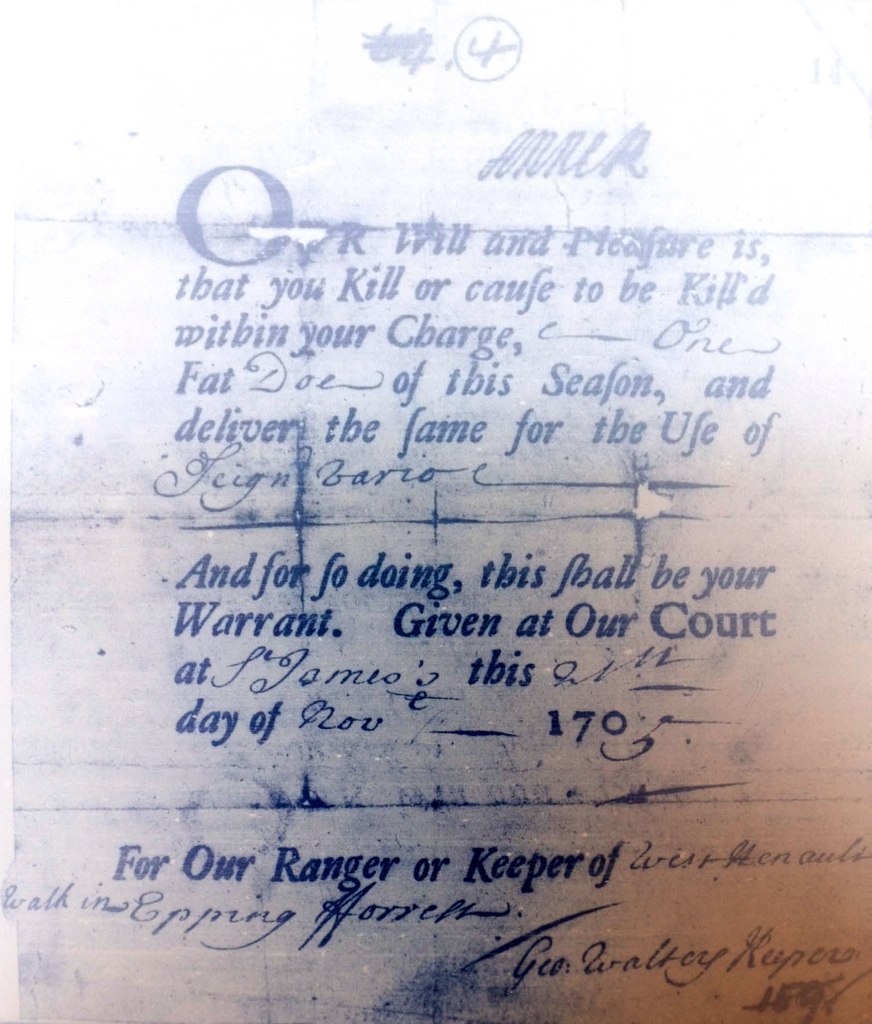 4
14
ANNE R
OUR Will and Pleaſure is,
that you Kill or cauſe to be Kill'd
within your Charge, One
Fat Doe of this Seaſon, and
deliver the ſame for the Uſe of
Seign Vario
And for ſo doing, this ſhall be your
Warrant. Given at Our Court
at St James's this 21st
day of Nov 1705
For Our Ranger or Keeper of West Henault
Walk in Epping fforrest.
Geo: Walters Keeper